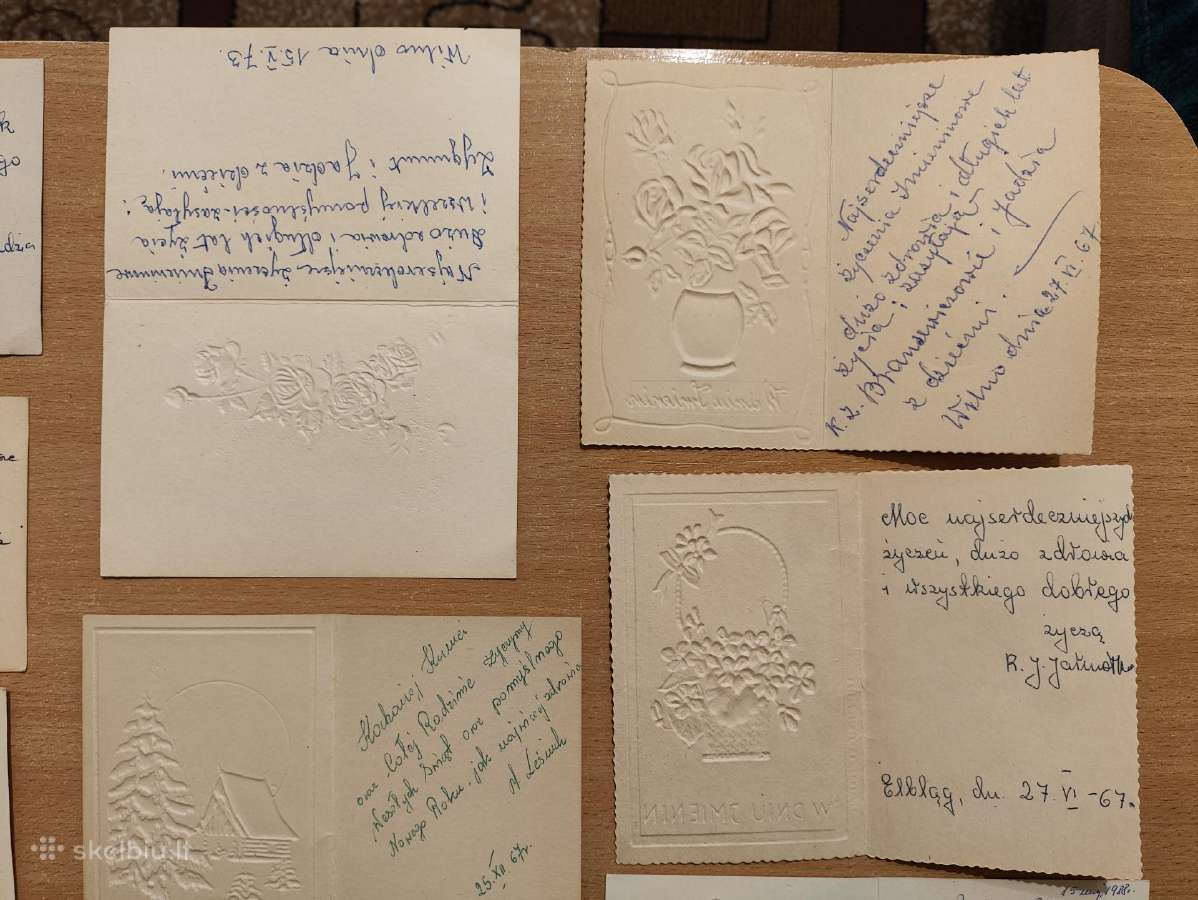 Wilno dnia 15.V.73.
Najserdeczniejsze życzenia Imieninowe
Dużo zdrowia i długich lat życia
i wszelkiej pomyślności zasyłają:
Zygmunt i Jadzia z dziećmi.
Najserdeczniejsze
życzenia Imieninowe
dużo zdrowia i długich lat
życia i zasyłają
K. Z. i Jadzia
z dziećmi.
Wilno dnia 27.VI.67
W dniu Imienin
Moc najserdeczniejszych
życzeń, dużo zdrowia
i wszystkiego dobrego
życzą
R. J.
Elbląg, dn. 27.VI-67r.
W DNIU IMIENIN
Kochanej
oraz Całej Rodzinie życzymy
Wesołych Świąt oraz pomyślnego
Nowego Roku. jak najwięcej zdrowia
25.XII 67r.
15 maj 1988r.
skelbiu.lt